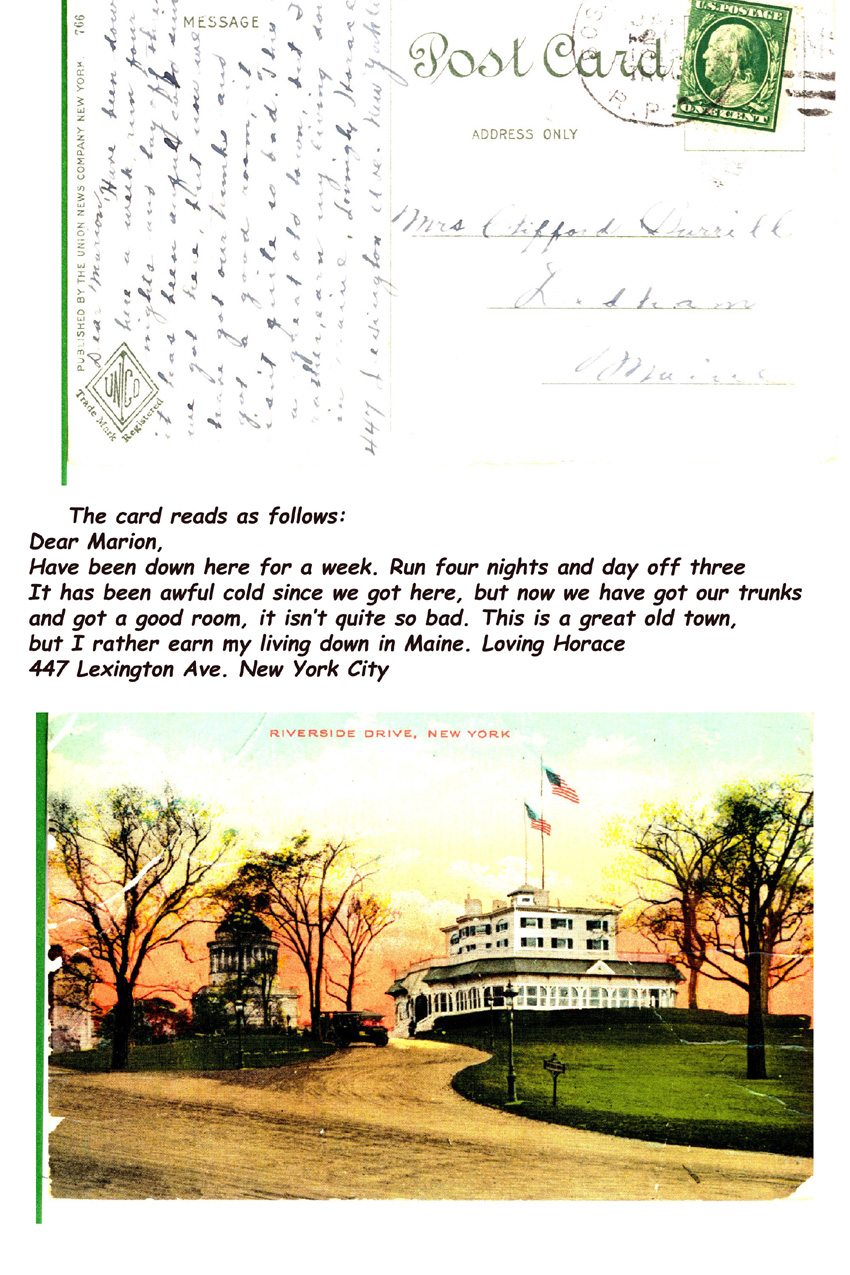 766
PUBLISHED BY THE UNION NEWS COMPANY NEW YORK
MESSAGE
Dear Marion,
Have been down
here a week run four
nights and lay off
it has been awful cold
we got here, but now we
have got our trunks and
got a good room, it
isn't quite so bad. This
a great old town, but I
rather earn my living down
in Maine, Lovingly Horace
447 Lexington Ave. New York
UNCO
Trade Mark
Registered
Post Card
ADDRESS ONLY
U.S. POSTAGE
ONE CENT
R. P.
Mrs Clifford Durrell
Maine
The card reads as follows:
Dear Marion,
Have been down here for a week. Run four nights and day off three
It has been awful cold since we got here, but now we have got our trunks
and got a good room, it isn't quite so bad. This is a great old town,
but I rather earn my living down in Maine. Loving Horace
447 Lexington Ave. New York City
RIVERSIDE DRIVE, NEW YORK